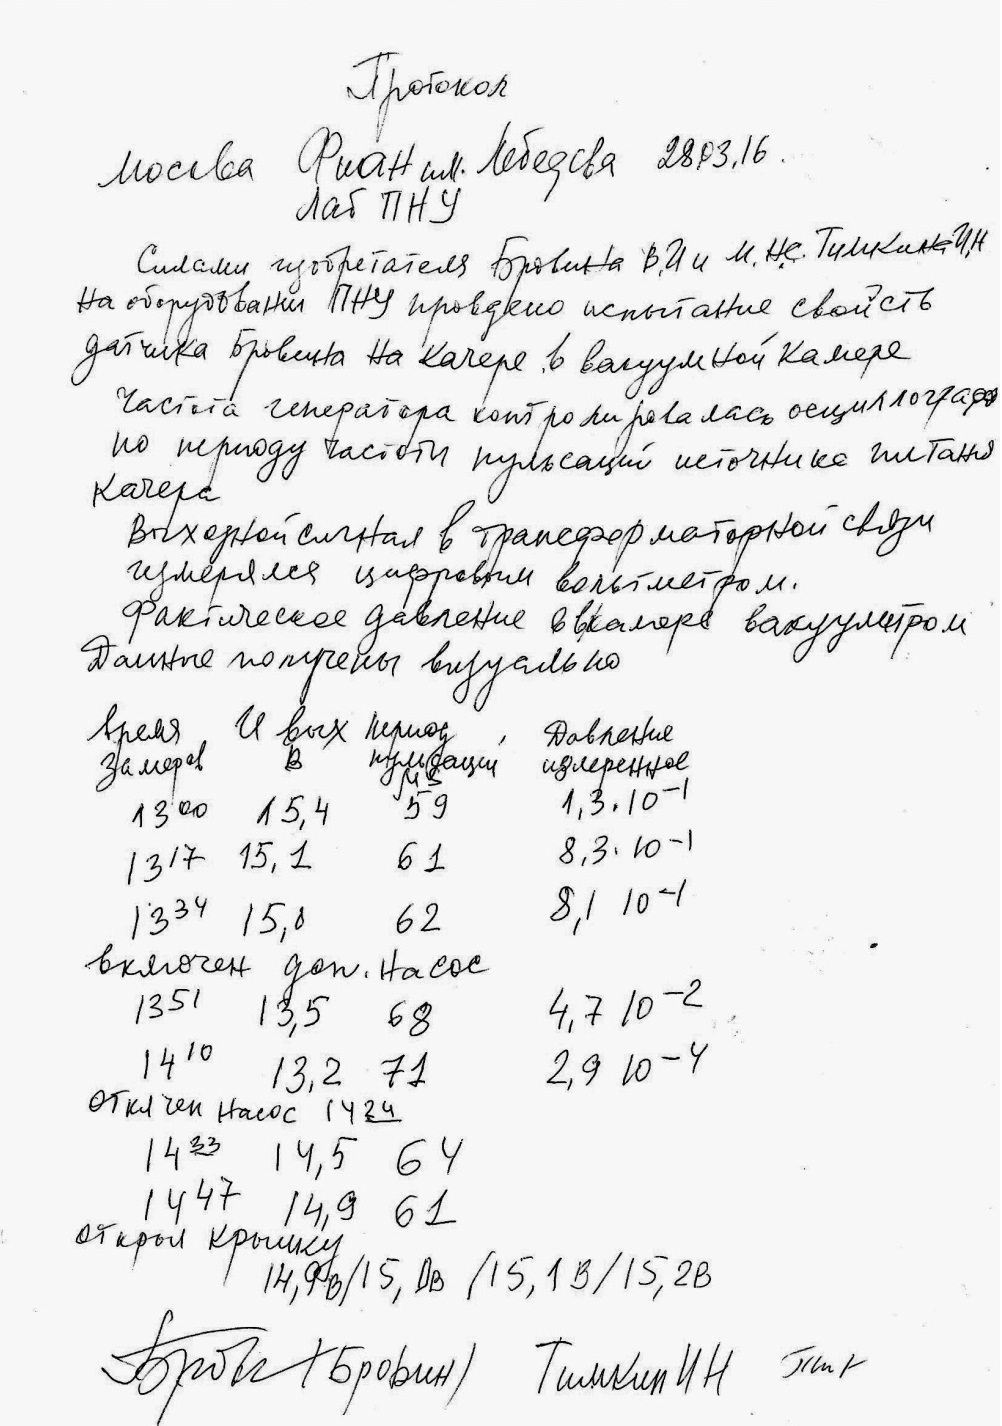 Протокол
Москва Фиан им. Лебедева 28.03.16.
Лаб ПНУ
Силами изобретателя Бровина В,И и М.Н.С. Тимкина И,Н
На оборудовани ПНУ проведено испытание свойсть
датчика Бровина на качере в вакуумной камере
Частота генератора контролировалась осциллографо
по периоду частоты пульсаций источника питания
качера
Выходной сигнал в трансформаторной связи
измерялся цифровым вольтметром.
Фактическое давление в камере вакууметром
Данные получены визуально
Время U вых период Давление
Замеров В пульсаций измеренное
МS
13 00 15,4 59 1,3·10 -1
13 17 15,1 61 8,3·10 -1
13 34 15,0 62 8,1 10 -1
включен доп. насос
13 51 13,5 68 4,7 10 -2
14 10 13,2 71 2,9 10 -4
отклчен насос 14 24
14 33 14,5 64
14 47 14,9 61
открыл крышку
14,9в/15,0в/15,1В/15,2В
(Бровин) Тимкин ИН